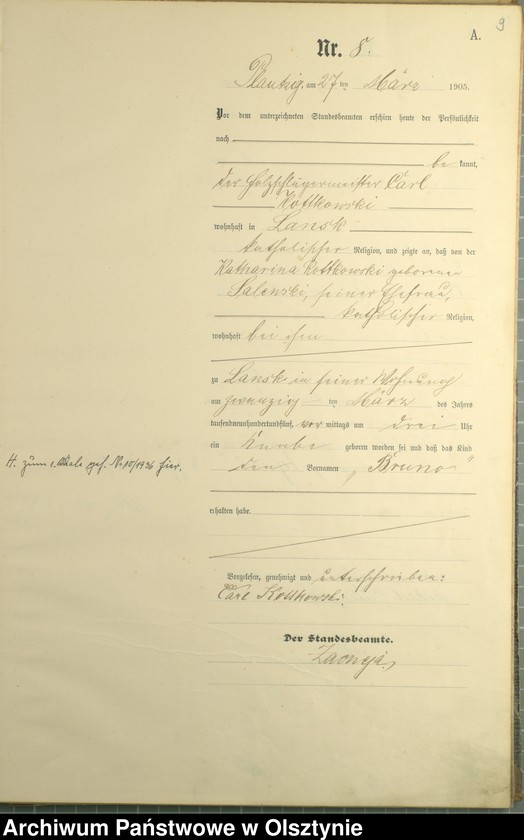 9
A.
Nr. 8.
Plautzig, am 27ten März 1905.
Vor dem unterzeichneten Standesbeamten erschien heute der Persönlichkeit
nach
bekannt,
der Holzschlägermeister Carl
Kottkowski
wohnhaft in Lansk
katholischer Religion, und zeigte an, daß von der
Katharina Kottkowski geborenen
Salenski, seiner Ehefrau,
katholischer Religion,
wohnhaft bei ihm
zu Lansk in seiner Wohnung
am zwanzigten März des Jahres
tausendneunhundertundfünf, vormittags um drei Uhr
ein Knabe geboren worden sei und daß das Kind
den Vornamen „Bruno"
H. zum 1. Male gef. No 10/1926 hier.
erhalten habe.
Vorgelesen, genehmigt und unterschrieben:
Carl Kottkowski.
Der Standesbeamte.
Archiwum Państwowe w Olsztynie